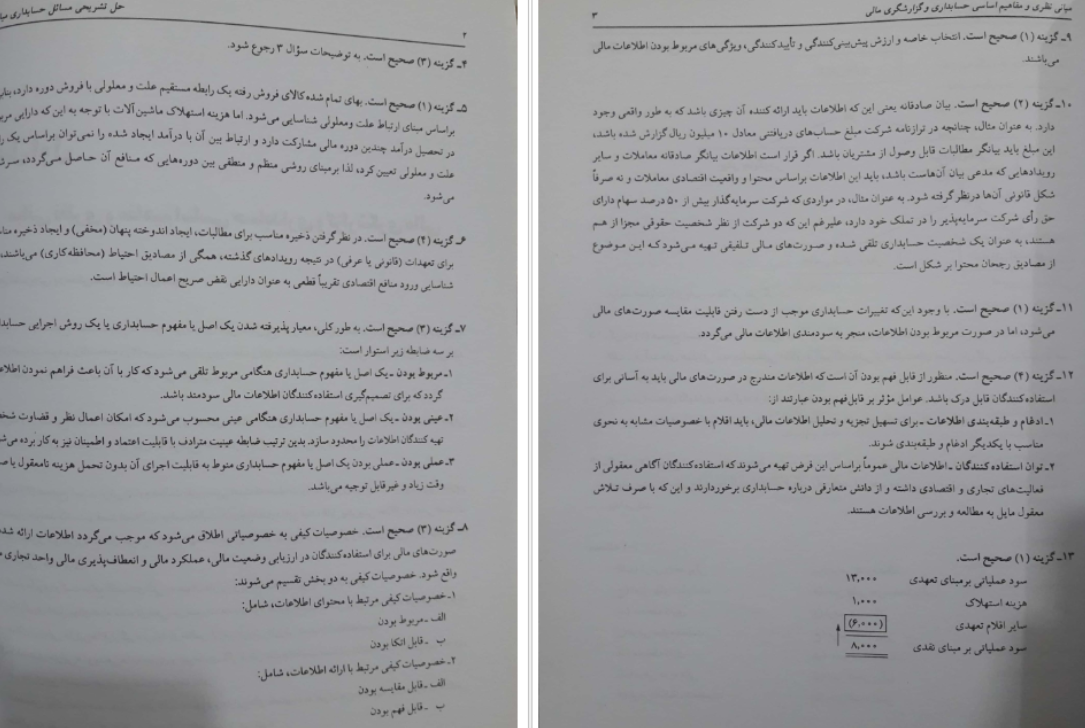 حل تشریحی مسائل حسابداری
۲
۴ـ گزینه (۳) صحیح است. به توضیحات سؤال ۳ رجوع شود.
۵ـ گزینه (۱) صحیح است. بهای تمام شده کالای فروش رفته یک رابطه مستقیم علت و معلولی با فروش دوره دارد،
براساس مبنای ارتباط علت ومعلولی شناسایی می‌شود. اما هزینه استهلاک ماشین‌آلات با توجه به این که دارایی
در تحصیل درآمد چندین دوره مالی مشارکت دارد و ارتباط بین آن با درآمد ایجاد شده را نمی‌توان براساس یک
علت و معلولی تعیین کرد، لذا برمبنای روشی منظم و منطقی بین دوره‌هایی که منافع آن حاصل می‌گردد،
می‌شود.
۶ـ گزینه (۴) صحیح است. در نظر گرفتن ذخیره مناسب برای مطالبات، ایجاد اندوخته پنهان (مخفی) و ایجاد ذخیره
برای تعهدات (قانونی یا عرفی) در نتیجه رویدادهای گذشته، همگی از مصادیق احتیاط (محافظه‌کاری) می‌باشند،
شناسایی ورود منافع اقتصادی تقریباً قطعی به عنوان دارایی نقض صریح اعمال احتیاط است.
۷ـ گزینه (۳) صحیح است. به طور کلی، معیار پذیرفته شدن یک اصل یا مفهوم حسابداری یا یک روش اجرایی
بر سه ضابطه زیر استوار است:
۱ـ مربوط بودن ـ یک اصل یا مفهوم حسابداری هنگامی مربوط تلقی می‌شود که کار با آن باعث فراهم نمودن
گردد که برای تصمیم‌گیری استفاده‌کنندگان اطلاعات مالی سودمند باشد.
۲ـ عینی بودن ـ یک اصل یا مفهوم حسابداری هنگامی عینی محسوب می‌شود که امکان اعمال نظر و قضاوت
تهیه کنندگان اطلاعات را محدود سازد. بدین ترتیب ضابطه عینیت مترادف با قابلیت اعتماد و اطمینان نیز به کار برده
۳ـ عملی بودن ـ عملی بودن یک اصل یا مفهوم حسابداری منوط به قابلیت اجرای آن بدون تحمل هزینه نامعقول یا
وقت زیاد و غیرقابل توجیه می‌باشد.
۸ـ گزینه (۳) صحیح است. خصوصیات کیفی به خصوصیاتی اطلاق می‌شود که موجب می‌گردد اطلاعات ارائه
صورت‌های مالی برای استفاده‌کنندگان در ارزیابی وضعیت مالی، عملکرد مالی و انعطاف‌پذیری مالی واحد تجاری
واقع شود. خصوصیات کیفی به دو بخش تقسیم می‌شوند:
۱ـ خصوصیات کیفی مرتبط با محتوای اطلاعات، شامل:
الف ـ مربوط بودن
ب ـ قابل اتکا بودن
۲ـ خصوصیات کیفی مرتبط با ارائه اطلاعات، شامل:
الف ـ قابل مقایسه بودن
ب ـ قابل فهم بودن
مبانی نظری و مفاهیم اساسی حسابداری و گزارشگری مالی
۳
۹ـ گزینه (۱) صحیح است. انتخاب خاصه و ارزش پیش‌بینی‌کنندگی و تأییدکنندگی، ویژگی‌های مربوط بودن اطلاعات مالی
می‌باشند.
۱۰ـ گزینه (۲) صحیح است. بیان صادقانه یعنی این که اطلاعات باید ارائه کننده آن چیزی باشد که به طور واقعی وجود
دارد. به عنوان مثال، چنانچه در ترازنامه شرکت مبلغ حساب‌های دریافتنی معادل ۱۰ میلیون ریال گزارش شده باشد،
این مبلغ باید بیانگر مطالبات قابل وصول از مشتریان باشد. اگر قرار است اطلاعات بیانگر صادقانه معاملات و سایر
رویدادهایی که مدعی بیان آن‌هاست باشد، باید این اطلاعات براساس محتوا و واقعیت اقتصادی معاملات و نه صرفاً
شکل قانونی آن‌ها درنظر گرفته شود. به عنوان مثال، در مواردی که شرکت سرمایه‌گذار بیش از ۵۰ درصد سهام دارای
حق رأی شرکت سرمایه‌پذیر را در تملک خود دارد، علیرغم این که دو شرکت از نظر شخصیت حقوقی مجزا از هم
هستند، به عنوان یک شخصیت حسابداری تلقی شده و صورت‌های مالی تلفیقی تهیه می‌شود که این موضوع
از مصادیق رجحان محتوا بر شکل است.
۱۱ـ گزینه (۱) صحیح است. با وجود این‌که تغییرات حسابداری موجب از دست رفتن قابلیت مقایسه صورت‌های مالی
می‌شود، اما در صورت مربوط بودن اطلاعات، منجر به سودمندی اطلاعات مالی می‌گردد.
۱۲ـ گزینه (۴) صحیح است. منظور از قابل فهم بودن آن است که اطلاعات مندرج در صورت‌های مالی باید به آسانی برای
استفاده‌کنندگان قابل درک باشد. عوامل مؤثر بر قابل‌فهم بودن عبارتند از:
۱ـ ادغام و طبقه‌بندی اطلاعات ـ برای تسهیل تجزیه و تحلیل اطلاعات مالی، باید اقلام با خصوصیات مشابه به نحوی
مناسب با یکدیگر ادغام و طبقه‌بندی شوند.
۲ـ توان استفاده کنندگان ـ اطلاعات مالی عموماً براساس این فرض تهیه می‌شوند که استفاده‌کنندگان آگاهی معقولی از
فعالیت‌های تجاری و اقتصادی داشته و از دانش متعارفی درباره حسابداری برخوردارند و این که با صرف تلاش
معقول مایل به مطالعه و بررسی اطلاعات هستند.
۱۳ـ گزینه (۱) صحیح است.
سود عملیاتی برمبنای تعهدی ۱۳,۰۰۰
هزینه استهلاک ۱,۰۰۰
سایر اقلام تعهدی (۶,۰۰۰)
سود عملیاتی بر مبنای نقدی ۸,۰۰۰